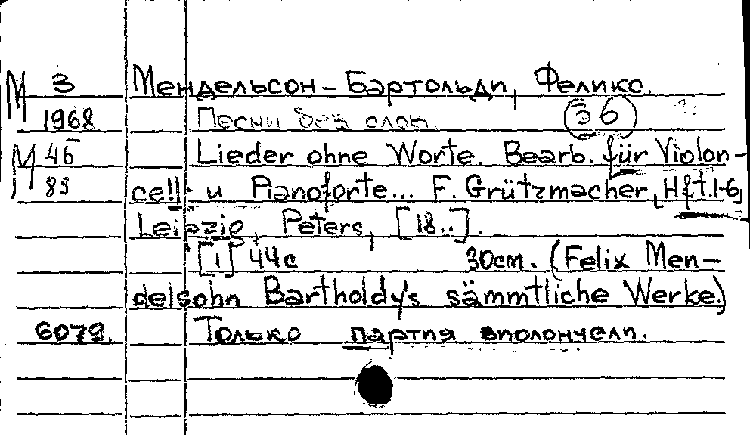 М 3 Мендельсон-Бартольди, Феликс.
1968 Песни без слов. 36
М 46 Lieder ohne Worte. Bearb. für Violon-
83 cell u Pianoforte... F. Grützmacher, [Hft.1-6]
Leipzig, Peters, [18..].
[1] 44с 30см. (Felix Men-
delsohn Bartholdy's sämmtliche Werke.)
6079. Только партия виолончели.